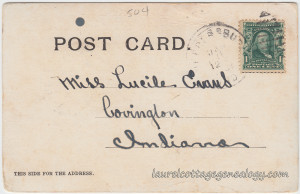 504
POST CARD.
Miss Lucile Evans
Covington
Indiana
THIS SIDE FOR THE ADDRESS.
laurelcottagegenealogy.com